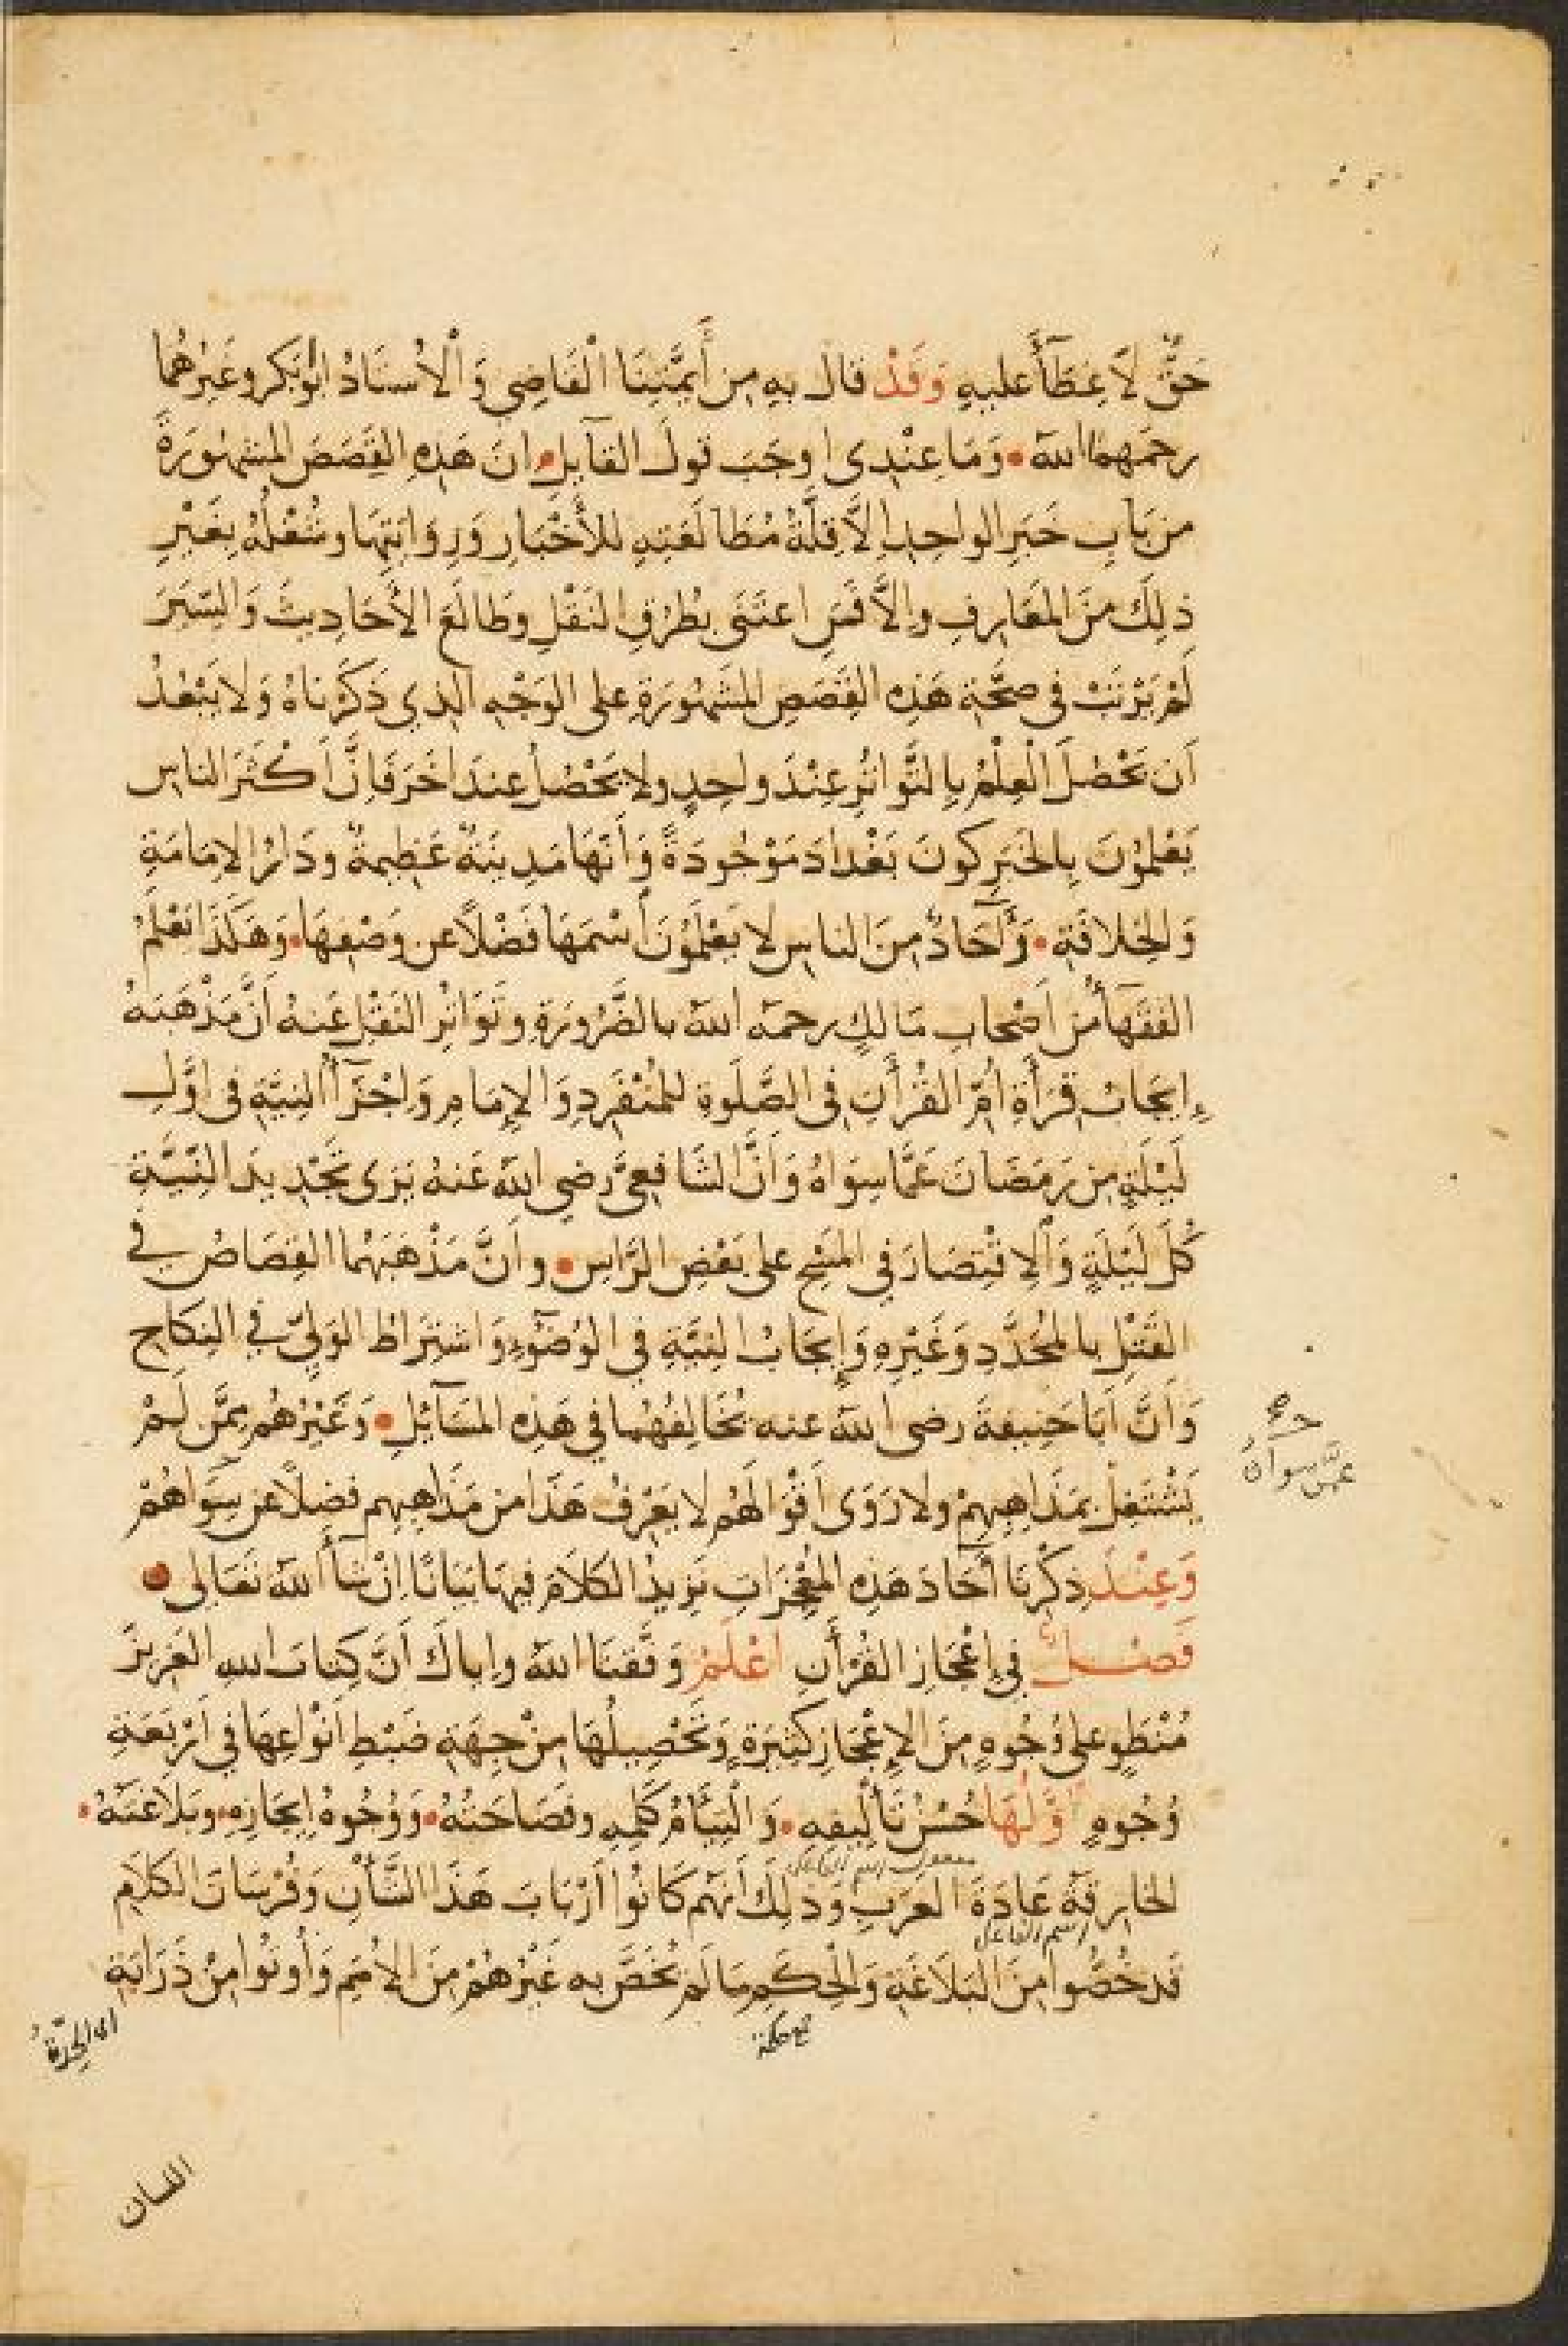 حَقٌّ لَا غِطَآءَ عليهِ وَقَدْ قال بهِ مِن أَيمَّتِنَا الْقَاضِي وَالْأُسْتَاذُ ابُوبَكرٍ وغَيْرُهُما
رحمَهما اللهُ • وَمَا عِنْدِى اوجَبَ قولَ القآيلِ • انَ هَذِهِ القِصَصَ المشهُورَةَ
من بَابِ خَبَرِ الواحِدِ إلاَّ قِلَّةُ مُطَالَعَتِهِ للأَخْبَارِ وَرِوَايَتِهَا وشُغْلُهُ بِغَيْرِ
ذلِكَ مِنَ المعَارِفِ وإلاَّ فَمَنِ اعتَنَى بِطُرُقِ النَقْلِ وَطَالَعَ الأحَادِيثَ وَالسِّيَرَ
لَمْ يَرْتَبْ فى صِحَّةِ هَذِهِ القِصَصِ المشهُورَةِ على الوَجْهِ الذِي ذَكَرْنَاهُ وَلا يَبْعُدُ
اَن يَحْصُلَ الْعِلْمُ بِالتَّوَاتُرِ عِنْدَ واحِدٍ ولا يَحْصُلُ عِندَ اخَرَ فَاِنَّ اَكْثَرَ الناسِ
يَعْلَمُونَ بِالخَبَرِ كونَ بَغْدادَ مَوْجُودَةً وَأنَهَا مَدِينَةٌ عَظِيمةٌ ودَارُ الاِمَامَةِ
وَالخِلافَةِ • وَآحَادٌ مِنَ الناسِ لا يَعْلَمُونَ اْسْمَهَا فَضْلًا عن وَصْفِهَا • وَهَكَذَا يَعْلَمُ
الفقَهآءُ مِن اَصْحابِ مَالِكٍ رحمَه اللهُ بالضَّرُورَةِ وتَوَاتُرِ النَقْلِ عَنهُ اَنَّ مَذْهَبَهُ
إِيجَابُ قِرَأَةِ اُمِّ القُرْأَنِ فى الصَّلَوةِ للمُنْفَرِدِ وَالإمَامِ وَاِجْزَآءُ النِيَّةِ فى اوَّلِ
لَيْلَةٍ مِن رَمَضَانَ عَمَّا سِوَاهُ وَاَنَّ الشَافِعِيَّ رضى اللهُ عَنهُ يَرَى تَجْدِيدَ النِّيَّةِ
كُلَّ لَيْلَةٍ وَالْاِقْتِصَارَ فى المَسْحِ على بَعْضِ الرَّاسِ • واَنَّ مَذْهَبَهُما القِصَاصُ فى
القَتْلِ بالمُحَدَّدِ وَغَيْرِهِ وَإيجَابُ النِيَّةِ فى الوُضُوٓءِ وَاشتِرَاطُ الوَلِيّ فى النِكَاحِ
وَاَنَّ اَبَا حَنِيفَةَ رضى اللهُ عنه يُخَالِفُهُما فى هَذِهِ المَسَآئِلِ • وَغَيْرُهُم مِمَّن لَمْ
يَشْتَغِلْ بِمَذَاهِبِهِمْ ولا رَوَى اَقْوَالَهُم لا يَعْرِفُ هَذَا من مَذَاهِبِهِم فضلًا عن سِوَاهُمْ
وَعِنْدَ ذِكْرِنَا آحَادَ هَذِهِ المعْجِزَاتِ نَزِيدُ الكَلاَمَ فيهَا بَيَانًا اِنْ شَآءَ اللهُ تَعَالى •
فَصْلٌ فى إعْجَازِ القُرْأَنِ اعْلَمْ وَفَّقَنَا اللهُ وإياكَ اَنَّ كِتابَ اللهِ العَزِيزَ
مُنْطَوٍ على وُجُوهٍ مِنَ الإعْجَازِ كثِيَرةٍ وَتَحْصِيلُهَا مِنْ جِهَةِ ضَبْطِ اَنْوَاعِهَا فى اَرْبَعَةِ
وُجُوهٍ اَوَّلُهَا حُسْنُ تَألِيفِهِ • وَالْتِيَامُ كَلِمِهِ وفَصَاحَتُهُ • وَوُجُوهُ إيجَازِهِ • وبَلاَغَتُهُ •
الخارِقَةُ عَادَةَ العرَبِ وَذلِكَ اَنَهُم كَانُوا اَرْبَابَ هَذَا الشَّأنِ وَفُرْسَانَ الكَلامِ
اسم الفاعل
قد خُصُّوا مِنَ البَلاَغَةِ وَالْحِكَمِ مَا لَم يُخَصَّ به غَيْرُهُمْ مِنَ الأُمَمِ وَأُوتُوا مِنْ ذَرَابَةِ
جمع حكمة
اى الحِدَّةُ
اللسان